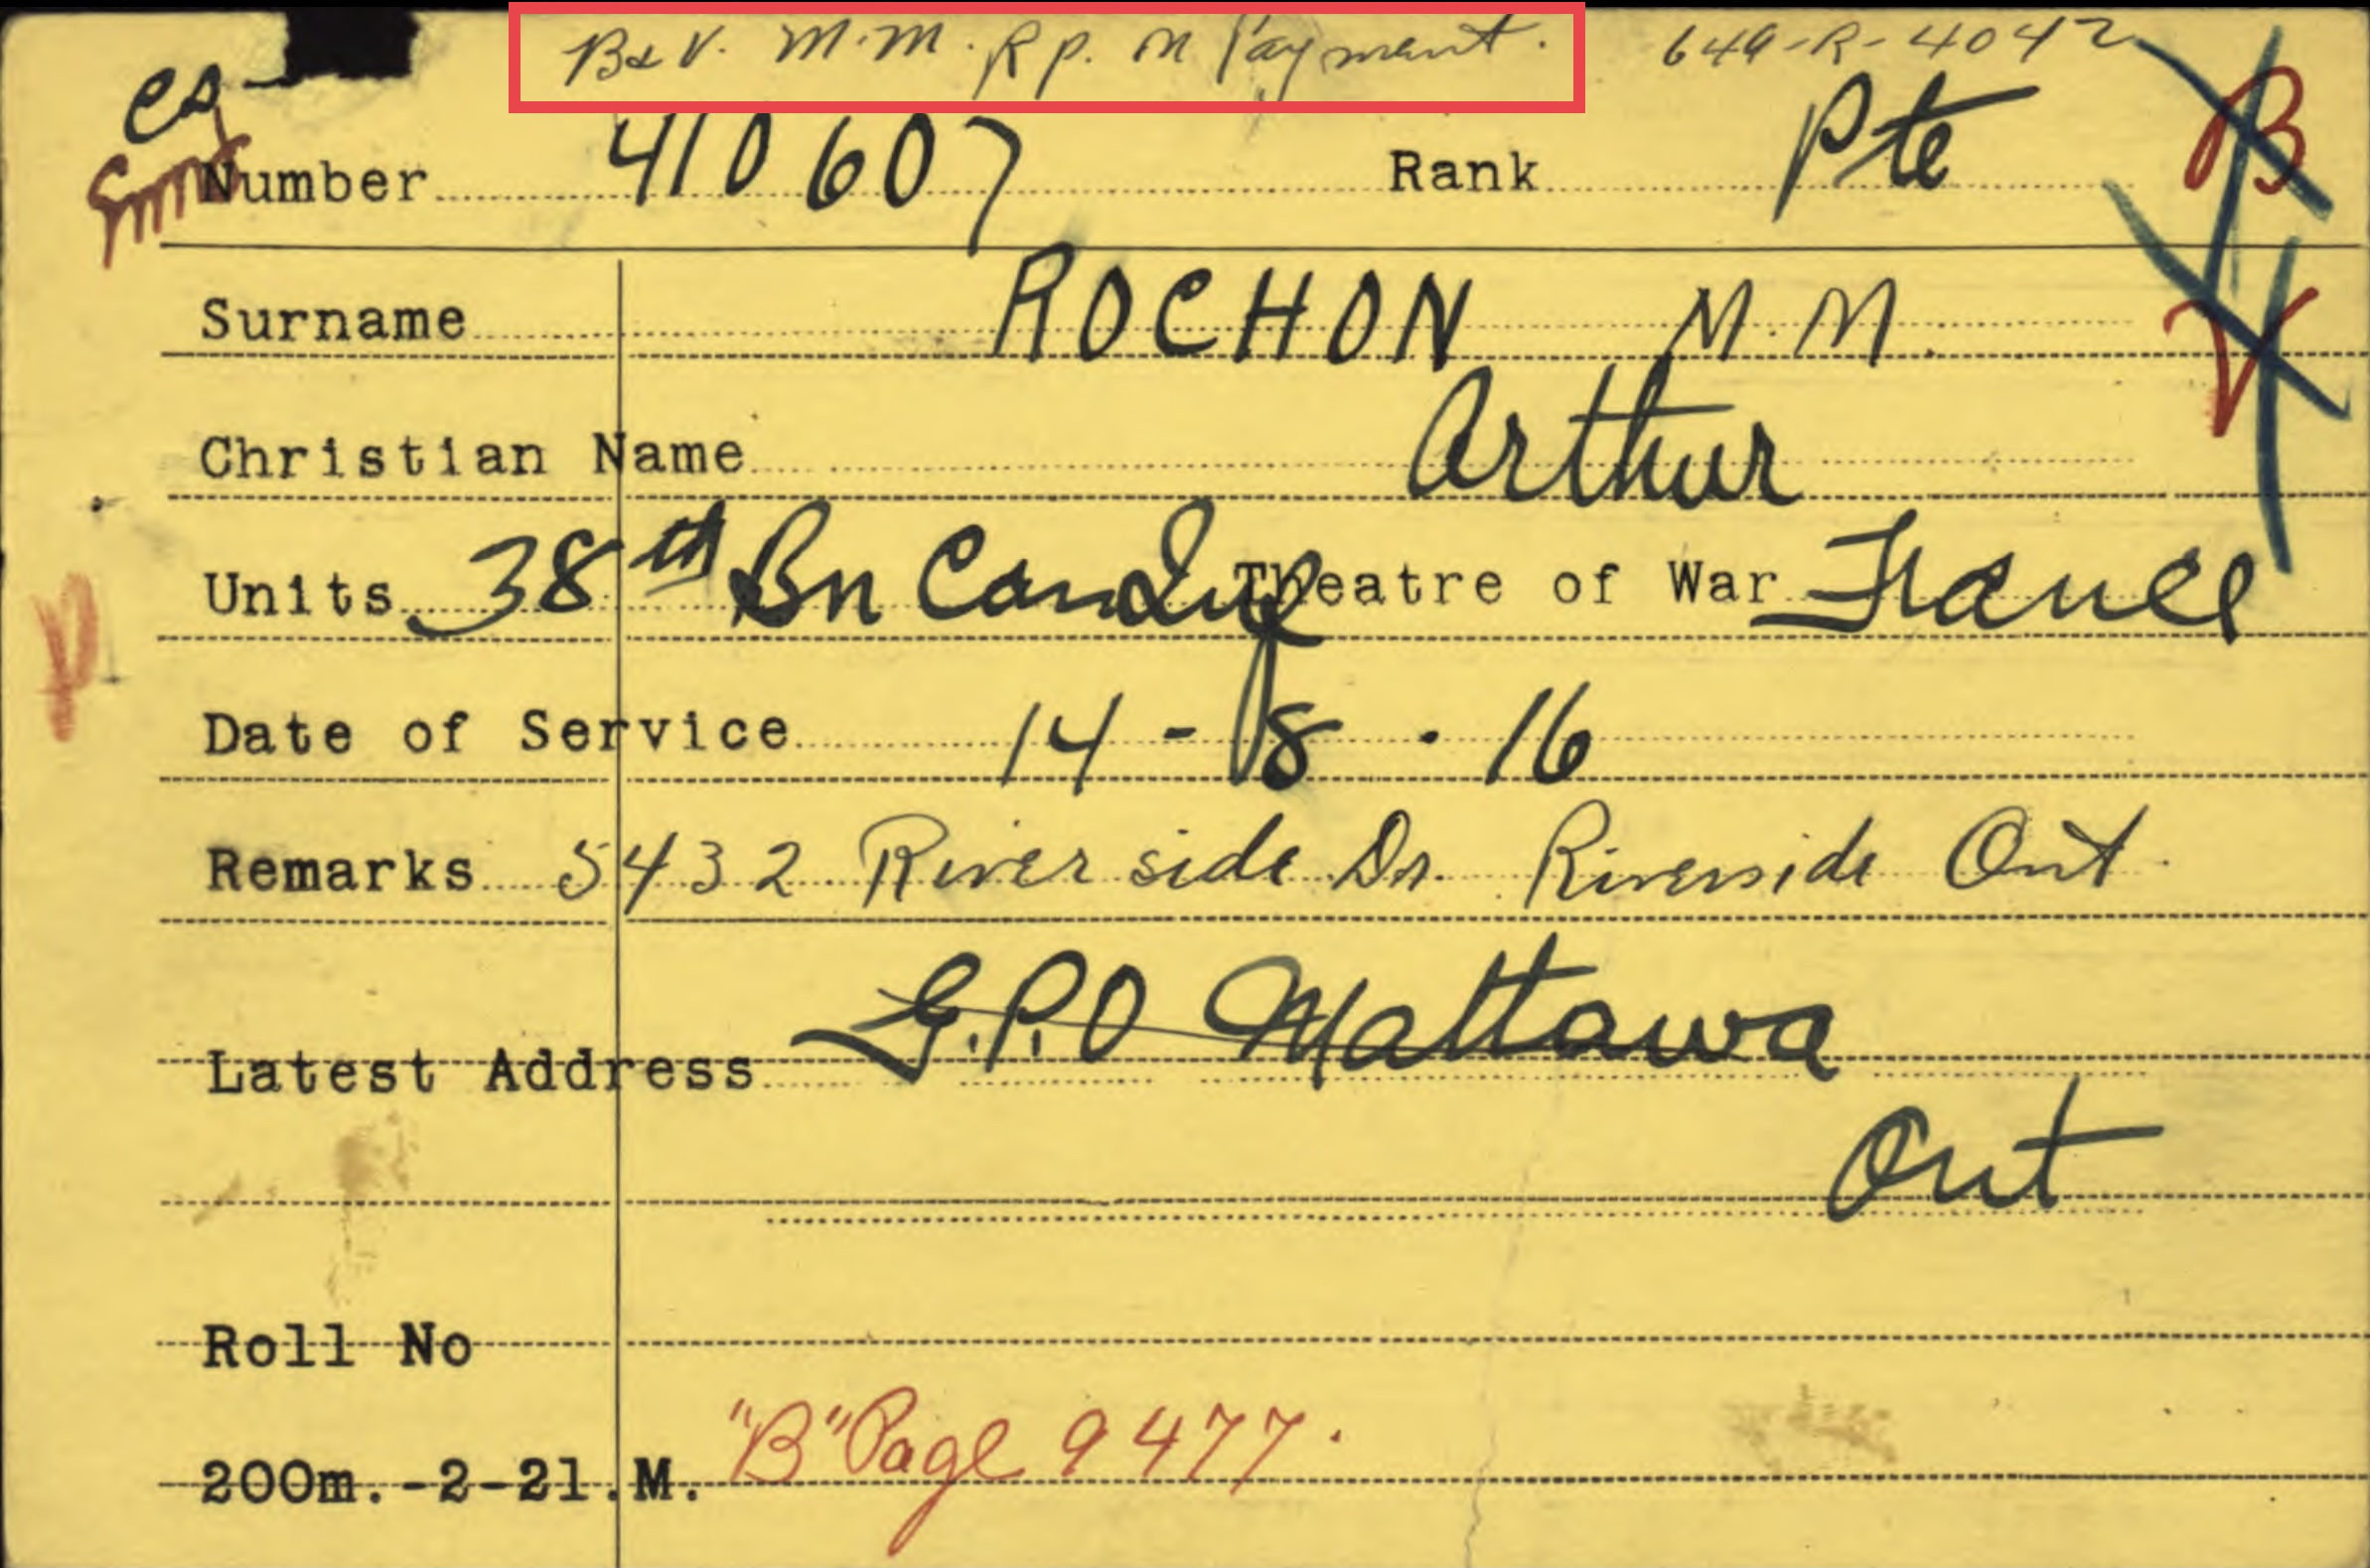 B & V. M.M. Rp. on Payment. 649-R-4042
es
Number 410607 Rank Pte B
Surname ROCHON M.M. V
Christian Name Arthur
Units 38th Bn Can Inf Theatre of War France
Date of Service 14-8-16
Remarks 5432 Riverside Dr. Riverside Ont.
Latest Address G.P.O Mattawa
Ont
Roll No
200m.-2-21.M. "B" Page 9477.